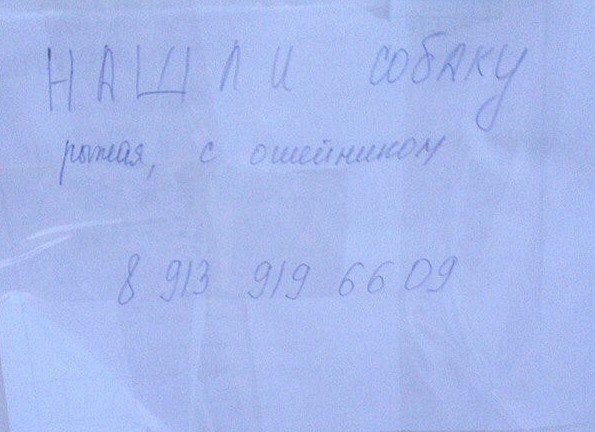 НАШЛИ СОБАКУ
рыжая, с ошейником
8 913 919 6609